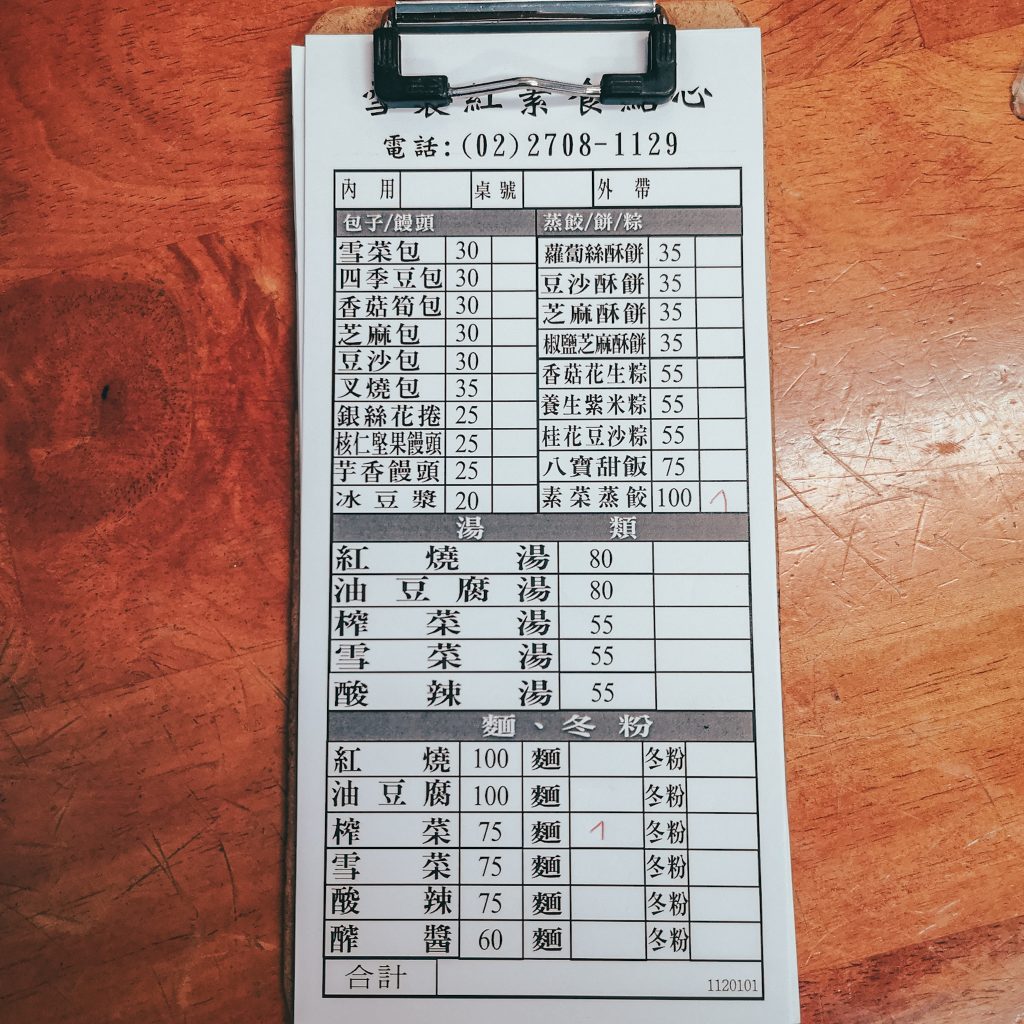 雪裏紅素食點心
電話:(02)2708-1129
內用 桌號 外帶
包子/饅頭 蒸餃/餅/粽
雪菜包 30 蘿蔔絲酥餅 35
四季豆包 30 豆沙酥餅 35
香菇筍包 30 芝麻酥餅 35
芝麻包 30 椒鹽芝麻酥餅 35
豆沙包 30 香菇花生粽 55
叉燒包 35 養生紫米粽 55
銀絲花捲 25 桂花豆沙粽 55
核仁堅果饅頭 25 八寶甜飯 75
芋香饅頭 25 素菜蒸餃 100 1
冰豆漿 20
湯類
紅燒湯 80
油豆腐湯 80
榨菜湯 55
雪菜湯 55
酸辣湯 55
麵、冬粉
紅燒 100 麵 冬粉
油豆腐 100 麵 冬粉
榨菜 75 麵 1 冬粉
雪菜 75 麵 冬粉
酸辣 75 麵 冬粉
醡醬 60 麵 冬粉
合計 1120101